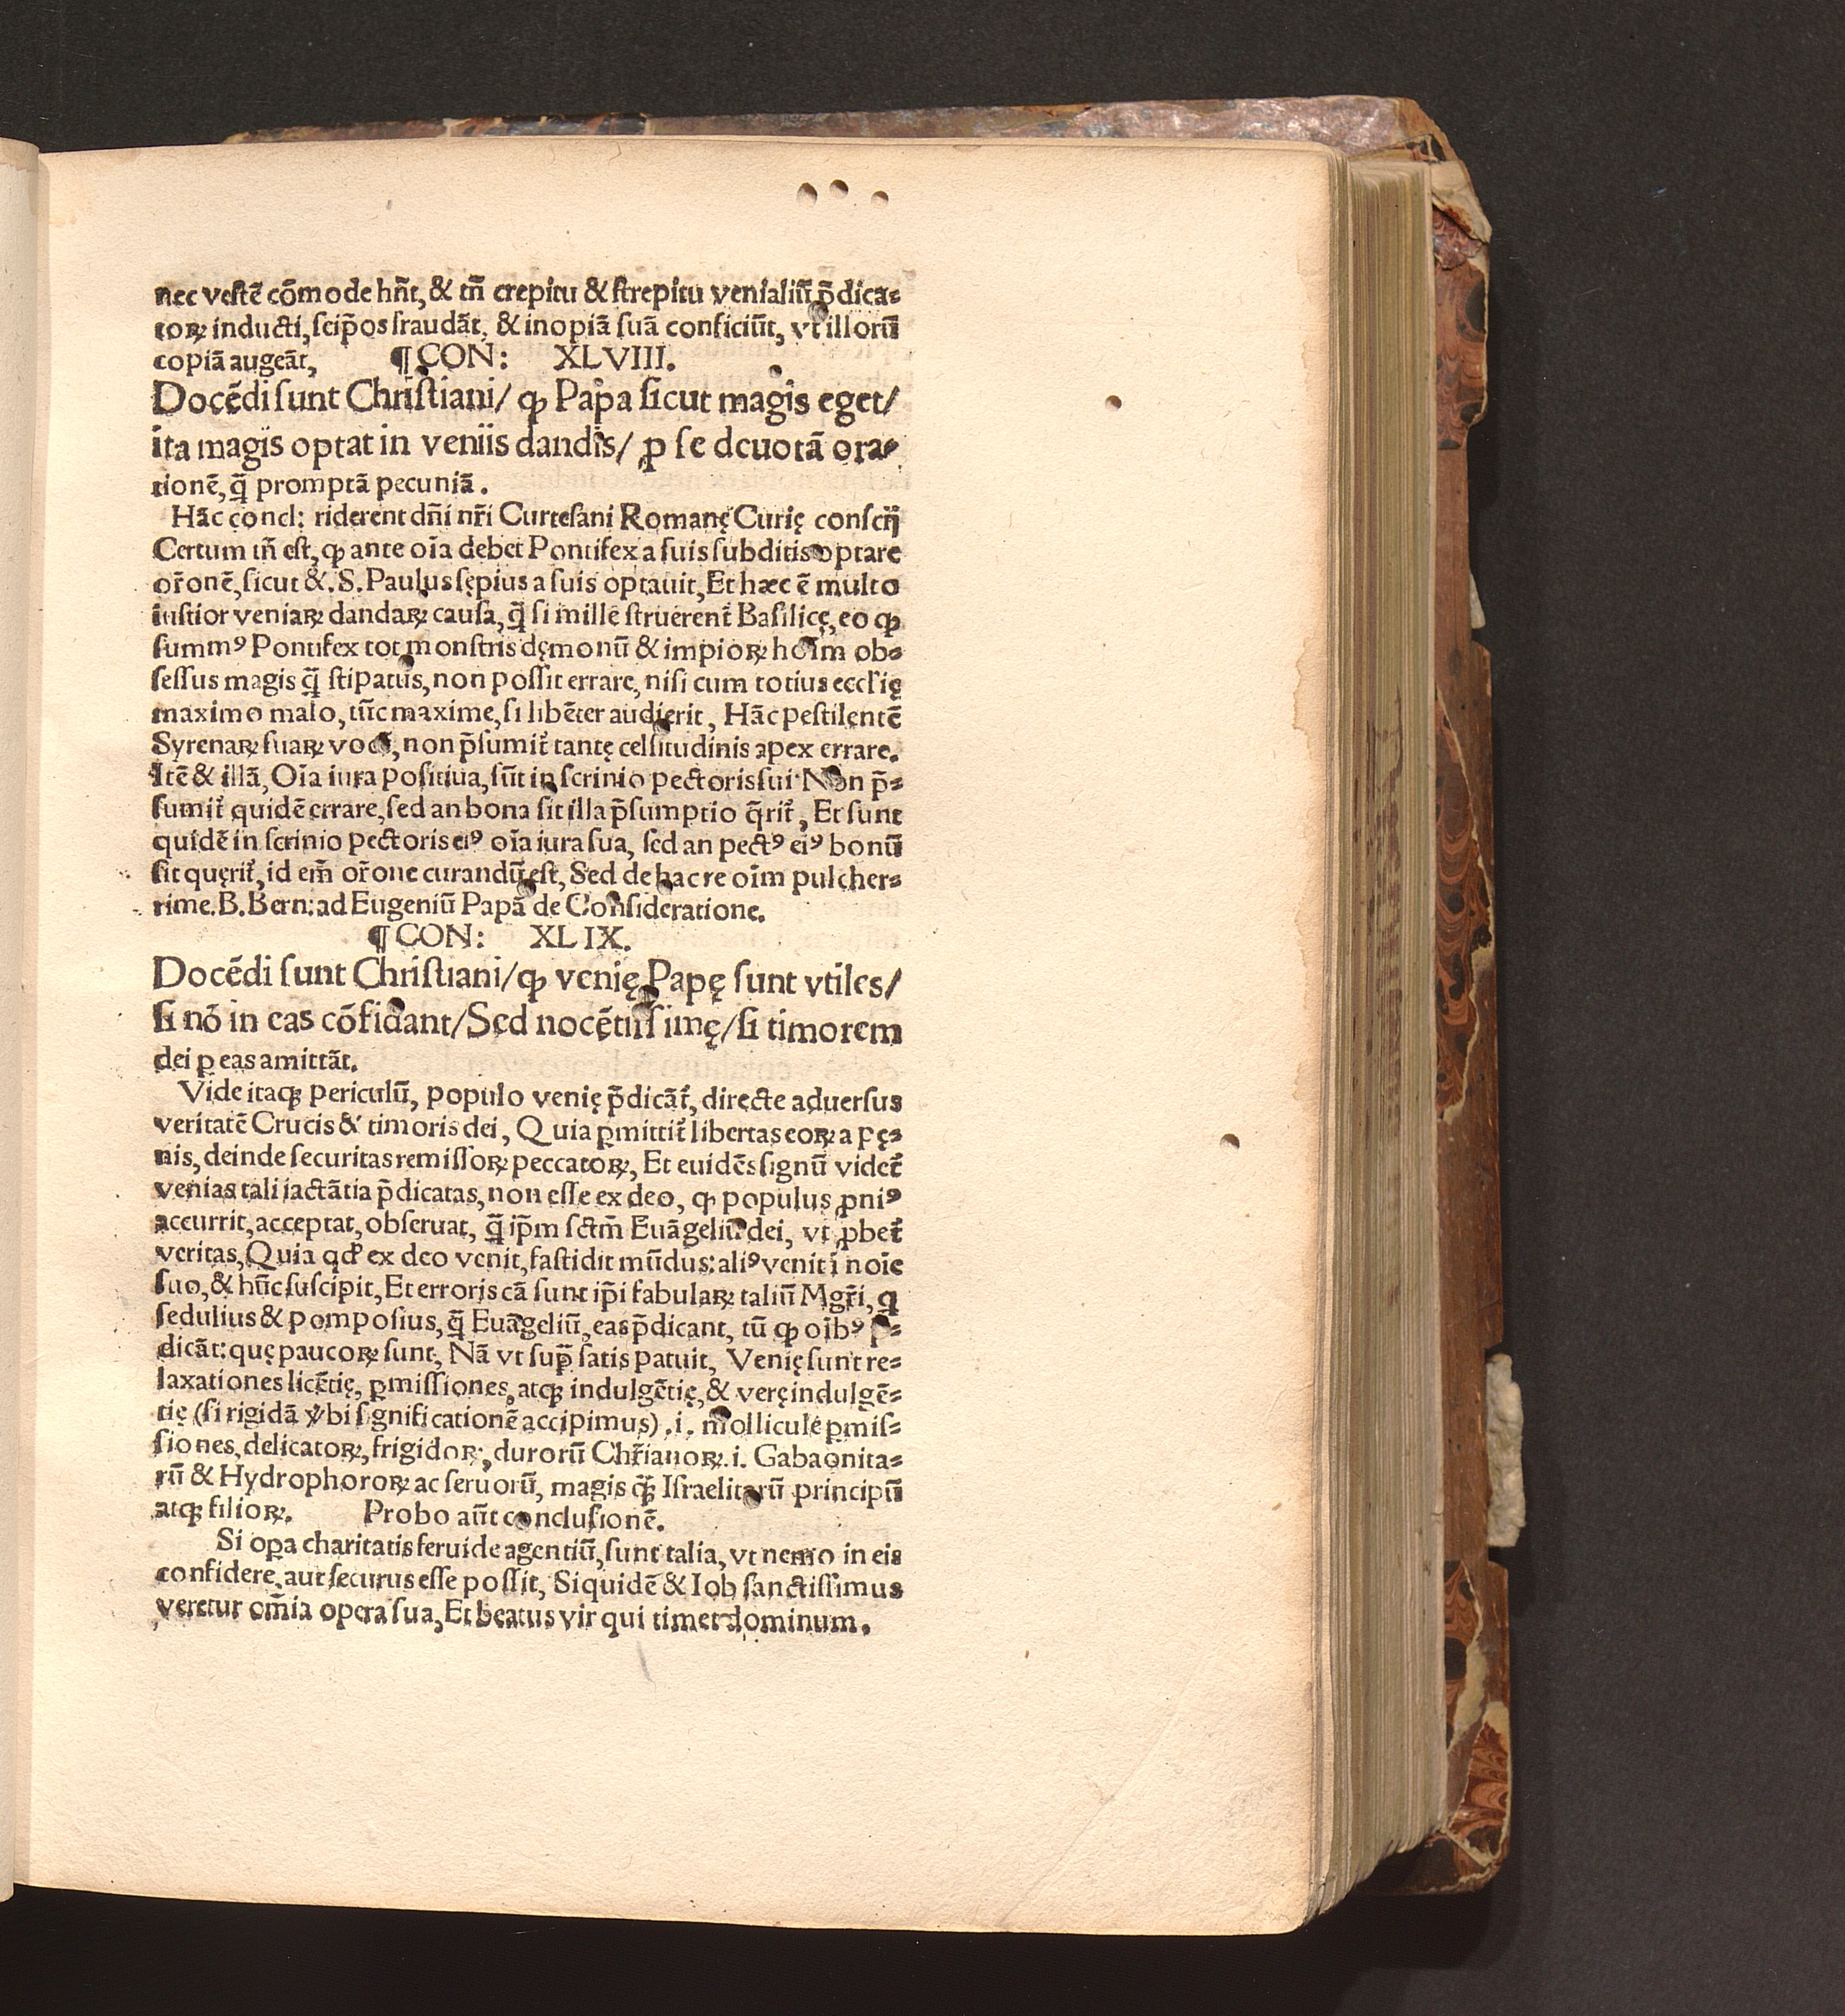 nec vestē cōmode hñt, & tñ crepitu & strepitu venialiū p̄dica⸗
toꝝ inducti, seip̄os fraudāt, & inopiā suā conficiūt, vt illorū
copiā augeāt, ¶ CON: XLVIII.
Docēdi sunt Christiani/ ꝙ Papa sicut magis eget/
ita magis optat in veniis dandis/ ꝓ se deuotā ora⸗
tionē, q̄ promptā pecuniā.
Hāc concl: riderent dñi nr̄i Curtesani Romanę Curię conscij
Certum tñ est, ꝙ ante oīa debet Pontifex a suis subditis optare
or̄onē, sicut &. S. Paulus sępius a suis optauit, Et hæc ē multo
iustior veniaꝝ dandaꝝ causa, q̄ si mille struerent᷑ Basilicę, eo ꝙ
summꝰ Pontifex tot monstris dęmonū & impioꝝ hoīm ob⸗
sessus magis q̄ stipatus, non possit errare, nisi cum totius eccl'ię
maximo malo, tūc maxime, si libēter audierit, Hāc pestilentē
Syrenaꝝ suaꝝ vocē, non p̄sumit᷑ tantę celsitudinis apex errare.
Itē & illā, Oīa iura positiua, sūt in scrinio pectoris sui. Non p̄⸗
sumit᷑ quidē errare, sed an bona sit illa p̄sumptio q̄rit᷑, Et sunt
quidē in scrinio pectoris eiꝰ oīa iura sua, sed an pectꝰ eiꝰ bonū
sit quęrit᷑, id em̄ or̄one curandū est, Sed de hac re oīm pulcher⸗
rime. B. Bern: ad Eugeniū Papā de Consideratione.
¶ CON: XLIX.
Docēdi sunt Christiani/ ꝙ venię Papę sunt vtiles/
si nō in eas cōfidant/ Sed nocētissimę/ si timorem
dei ꝑ eas amittāt.
Vide itaqꝫ periculū, populo venię p̄dicāt᷑, directe aduersus
veritatē Crucis & timoris dei, Quia ꝑmittit᷑ libertas eoꝝ a pę⸗
nis, deinde securitas remissoꝝ peccatoꝝ, Et euidēs signū videt᷑
venias tali iactātia p̄dicatas, non esse ex deo, ꝙ populus ꝓniꝰ
accurrit, acceptat, obseruat, q̄ ip̄m sctm̄ Euāgeliū dei, vt ꝓbet᷑
veritas, Quia qd' ex deo venit, fastidit mūdus: aliꝰ venit ī noīe
suo, & hūc suscipit, Et erroris cā sunt ip̄i fabulaꝝ taliū Mgr̄i, q
sedulius & pomposius, q̄ Euāgeliū, eas p̄dicant, tū ꝙ oībꝰ p̄⸗
dicāt: quę paucoꝝ sunt, Nā vt sup̄ satis patuit, Venię sunt re⸗
laxationes licētię, ꝑmissiones, atqꝫ indulgētię, & verę indulgē⸗
tię (si rigidā v̓bi significationē accipimus) .i. molliculę ꝑmis⸗
siones, delicatoꝝ, frigidoꝝ, durorū Chr̄ianoꝝ .i. Gabaonita⸗
rū & Hydrophoroꝝ ac seruorū, magis q̄ꝫ Israelitarū principū
atqꝫ filioꝝ. Probo aūt conclusionē.
Si oꝑa charitatis feruide agentiū, sunt talia, vt nemo in eis
confidere, aut securus esse possit, Siquidē & Iob sanctissimus
veretur om̄ia opera sua, Et beatus vir qui timet dominum.